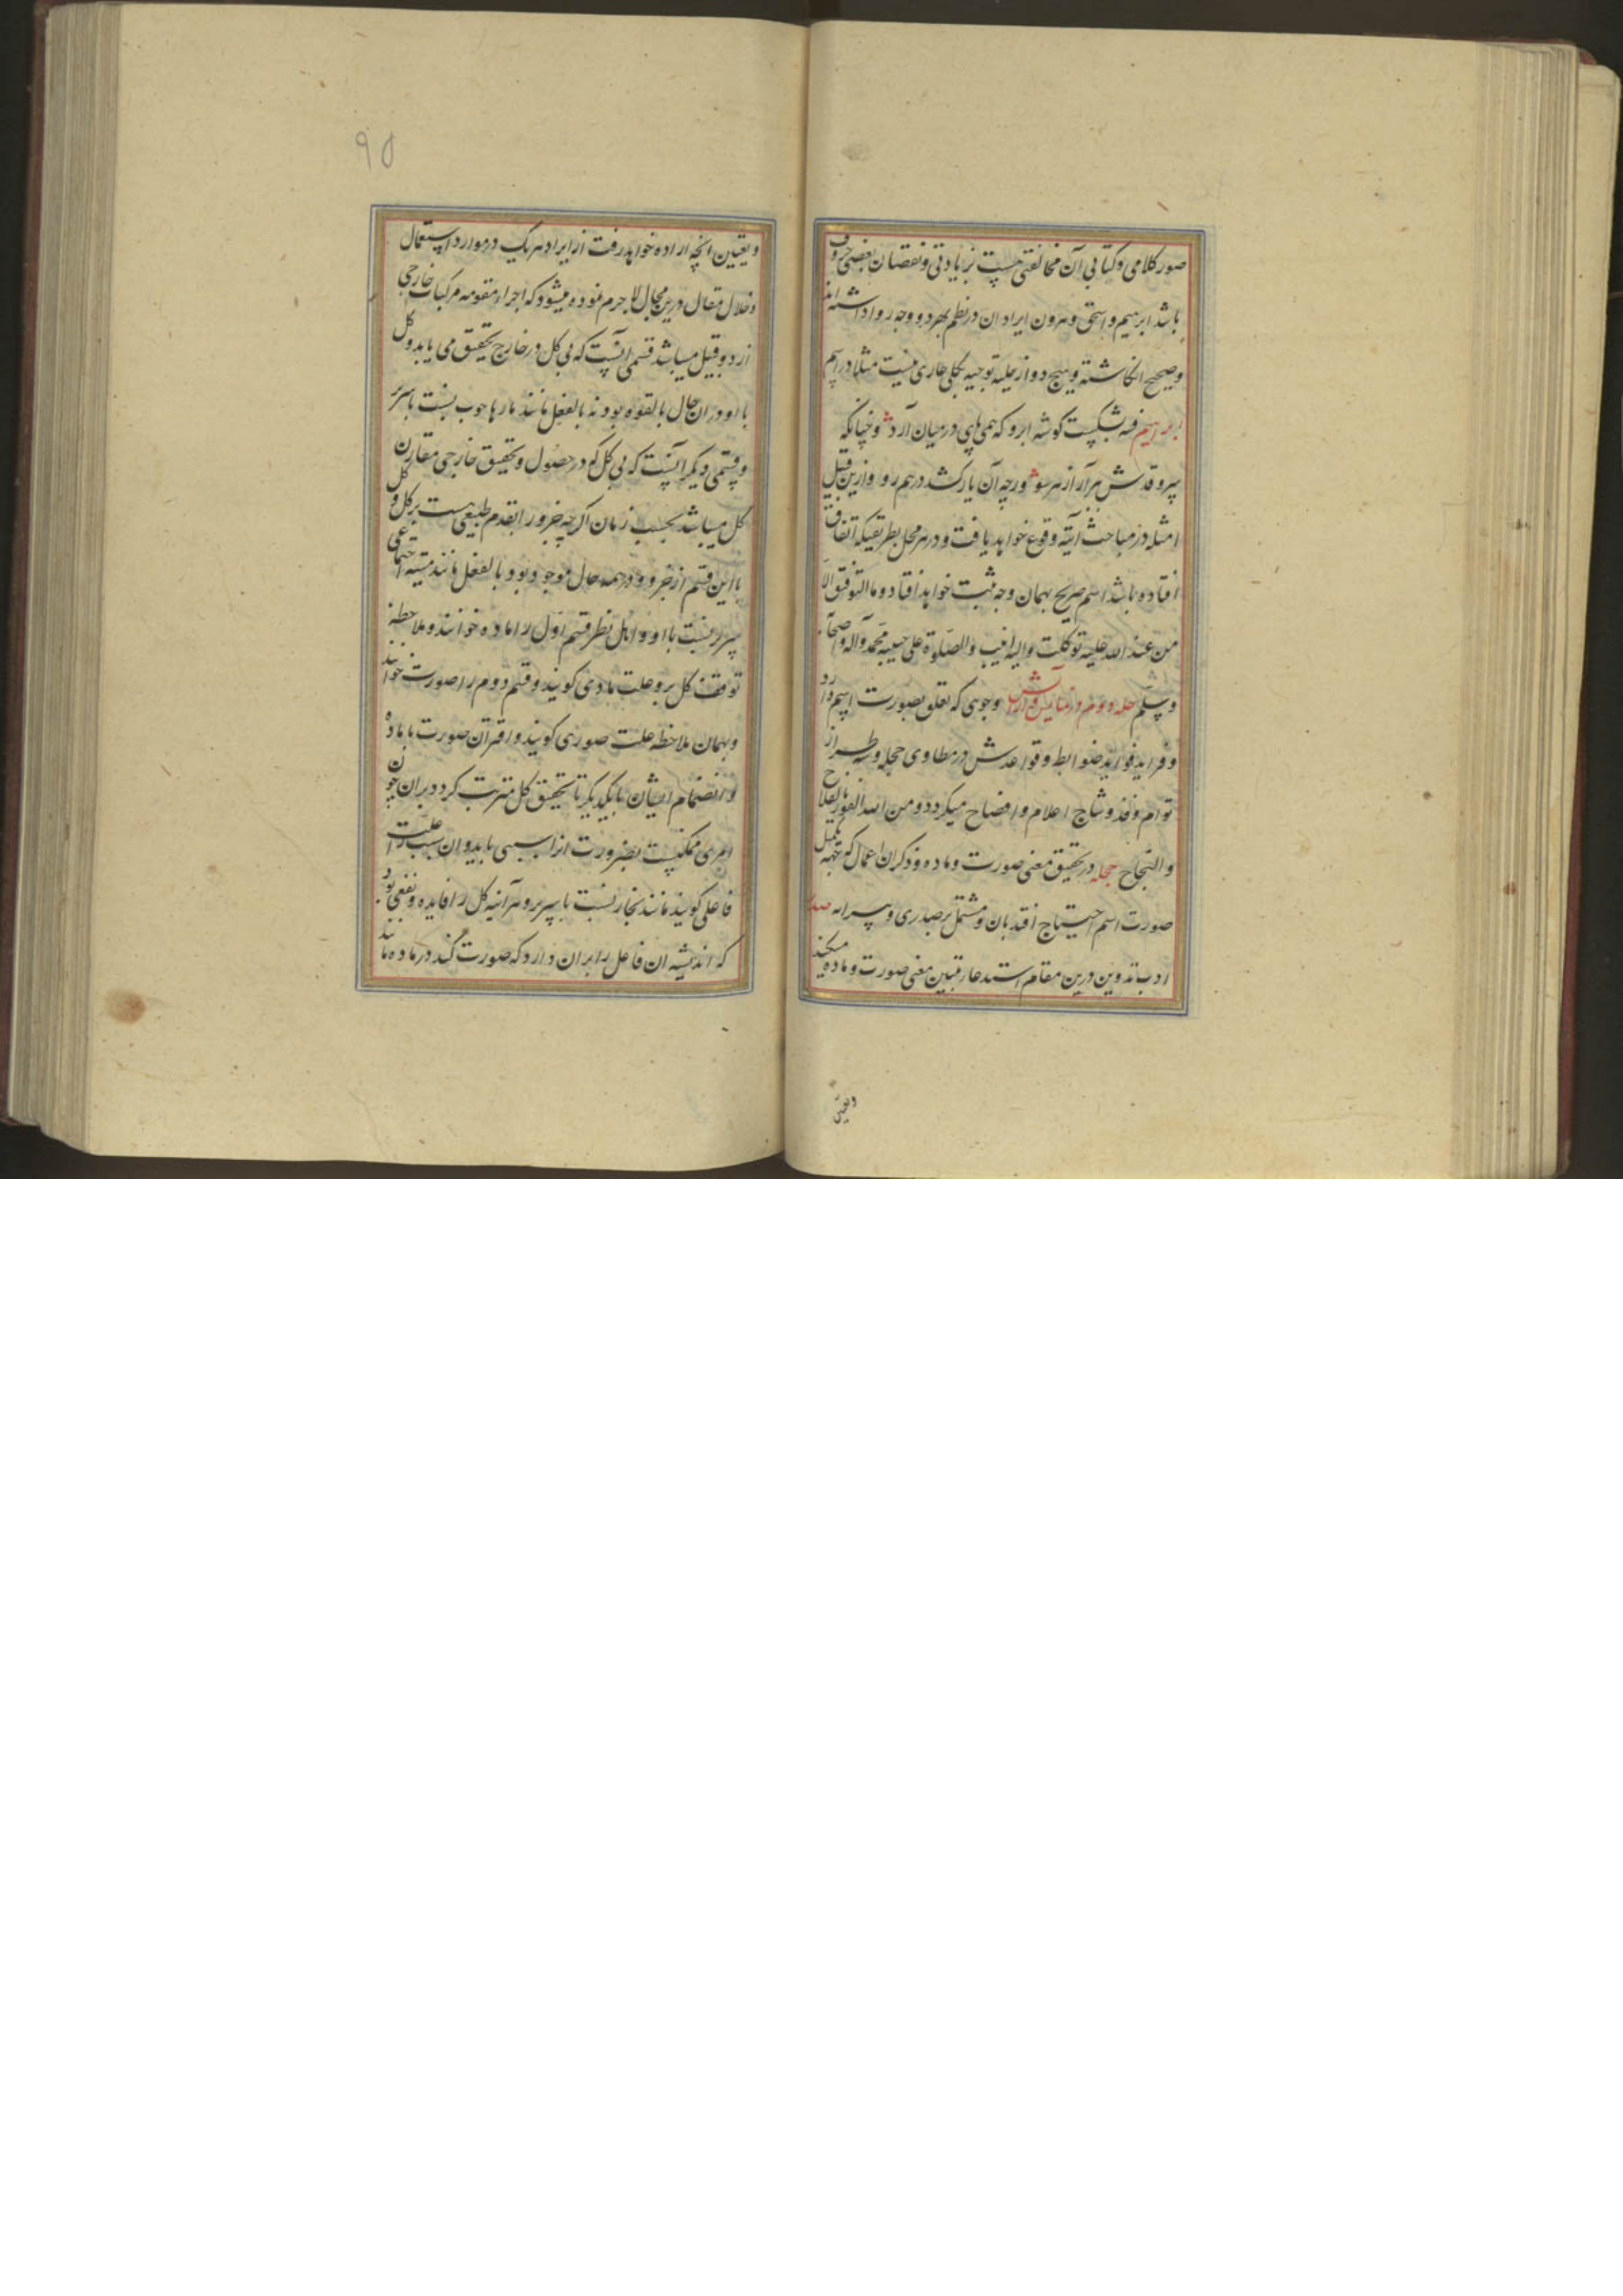 صور کلامی و کتابی آن مخالفتی هست بزیادتی و نقصان بعضی حروف
باشد ابرهیم و اسحق و هرون ایراد ان در نظم بهر دو وجه روا داشته اند
و صحیح انکاشته و هیچ دو از حلیه توجیه بکلی عاری نیست مثلا در اسم
ابراهیم فه بشکست کوشه ابرو که همی های در میان آرد و چنانکه
سرو قدش هزار از هر سو ورچه آن یار کشد در هم رو و ازین قبیل
امثله در مباحث آتیه وقوع خواهد یافت و در هر محل بطریقیکه اتفاق
افتاده باشد اسم صریح بهمان وجه ثبت خواهد افتاد و ما التوفیق الا
من عند الله علیه توکلت والیه انیب والصلوة علی حبیبه محمد وآله واصحابه
وسلم حله دوم در نمایش وجوهی که تعلق بصورت اسم دارد
و فراید فواید ضوابط و قواعدش در مطاوی حجله و سه طراز
توام و فذ و شاج اعلام و افضاح میکردد و من الله الفوز بالفلاح
والنجاح حجله در تحقیق معنی صورت و ماده و ذکر ان اعمال که جهه تکمیل
صورت اسم احتیاج افتد بان و مشتمل بر صدری و سرانه صدر
ادب تدوین درین مقام استدعاء تبیین معنی صورت و ماده میکند
وتعیین
۹۵
و تعیین انچه اراده خواهد رفت از ایراد هر یک در موارد استعمال
و خلال مقال درین مجال لا جرم نموده میشود که اجزاء مقومه مرکبات خارجی
از دو قبیل میباشد قسمی انست که بی کل در خارج تحقیق می یابد و کل
با او در ان حال بالقوه بود نه بالفعل مانند پارها چوب نسبت با سریر
و قسمی دیکر انست که بی کل که در حصول و تحقیق خارجی مقارن
کل میباشد بحسب زمان اکرچه جزو را تقدم طبیعی هست بر کل و کل
با این قسم از جزو در همه حال موجود بود بالفعل مانند هیئه اجتماعی
سریر نسبت با او و اهل نظر قسم اول را ماده خوانند و ملاحظه
توقف کل برو علت مادی کویند و قسم دوم را صورت خوانند
و بهمان ملاحظه علت صوری کویند و اقتران صورت با ماده
و انضمام ایشان با یکدیکر تا تحقیق کل مترتب کردد بران چون
امری ممکنست بضرورت انرا سببی باید و ان سبب را علت
فاعلی کویند مانند نجار نسبت با سریر و هر آینه کل را فایده و نفعی بود
که اندیشه ان فاعل را بران دارد که صورت کند در ماده مانند